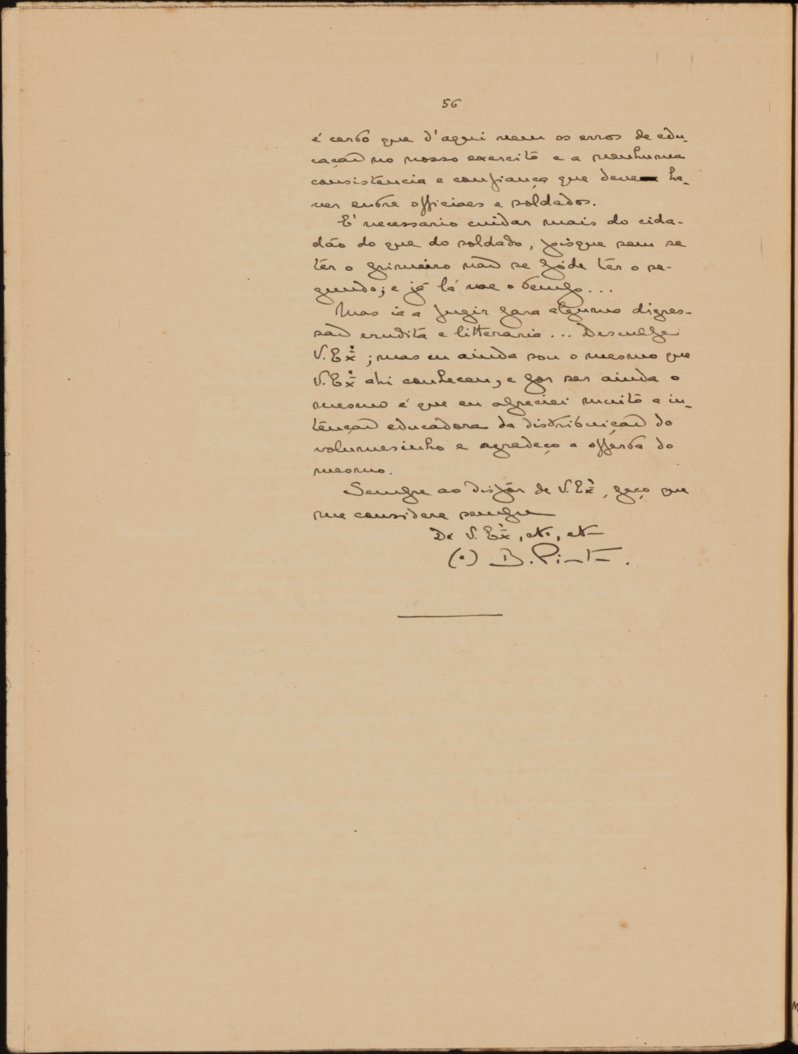 56
é certo que d'aqui vem os erros de edu-
cação no nosso exercito e a nenhuma
consistencia e confiança que deve ha-
ver entre officiaes e soldados.
E' necessario cuidar mais do cida-
dão do que do soldado, pois que sem se
ter o primeiro não se póde ter o se-
gundo; e já lá vae o tempo...
Mas ia a fugir para alguma digres-
são erudita e litteraria... Desculpe
V. Exª; mas eu ainda sou o mesmo que
V. Exª ahi conheceu, e por ser ainda o
mesmo é que eu apreciei muito a in-
tenção educadora da distribuição do
volumesinho e agradeço a offerta do
mesmo.
Sempre ao dispôr de V. Exª, peço que
me considere sempre
De V. Exª, etc., etc
(a) B. Pinto.